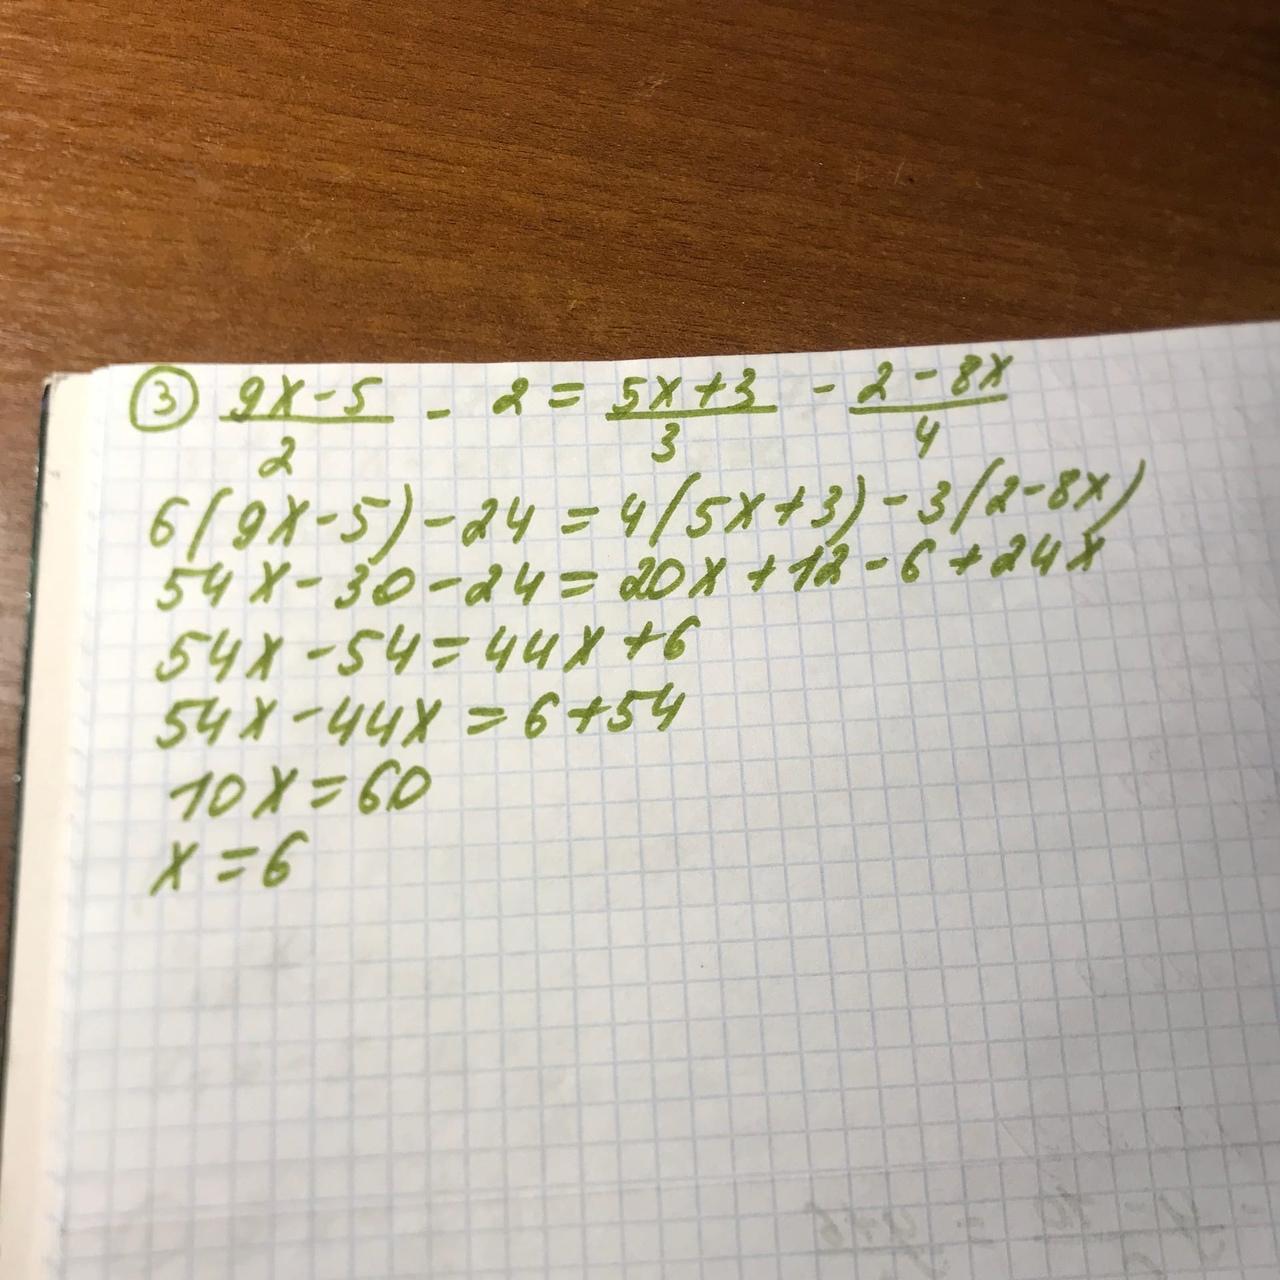 ③ (9x-5)/2 - 2 = (5x+3)/3 - (2-8x)/4
6(9x-5)-24=4(5x+3)-3(2-8x)
54x-30-24=20x+12-6+24x
54x-54=44x+6
54x-44x=6+54
10x=60
x=6